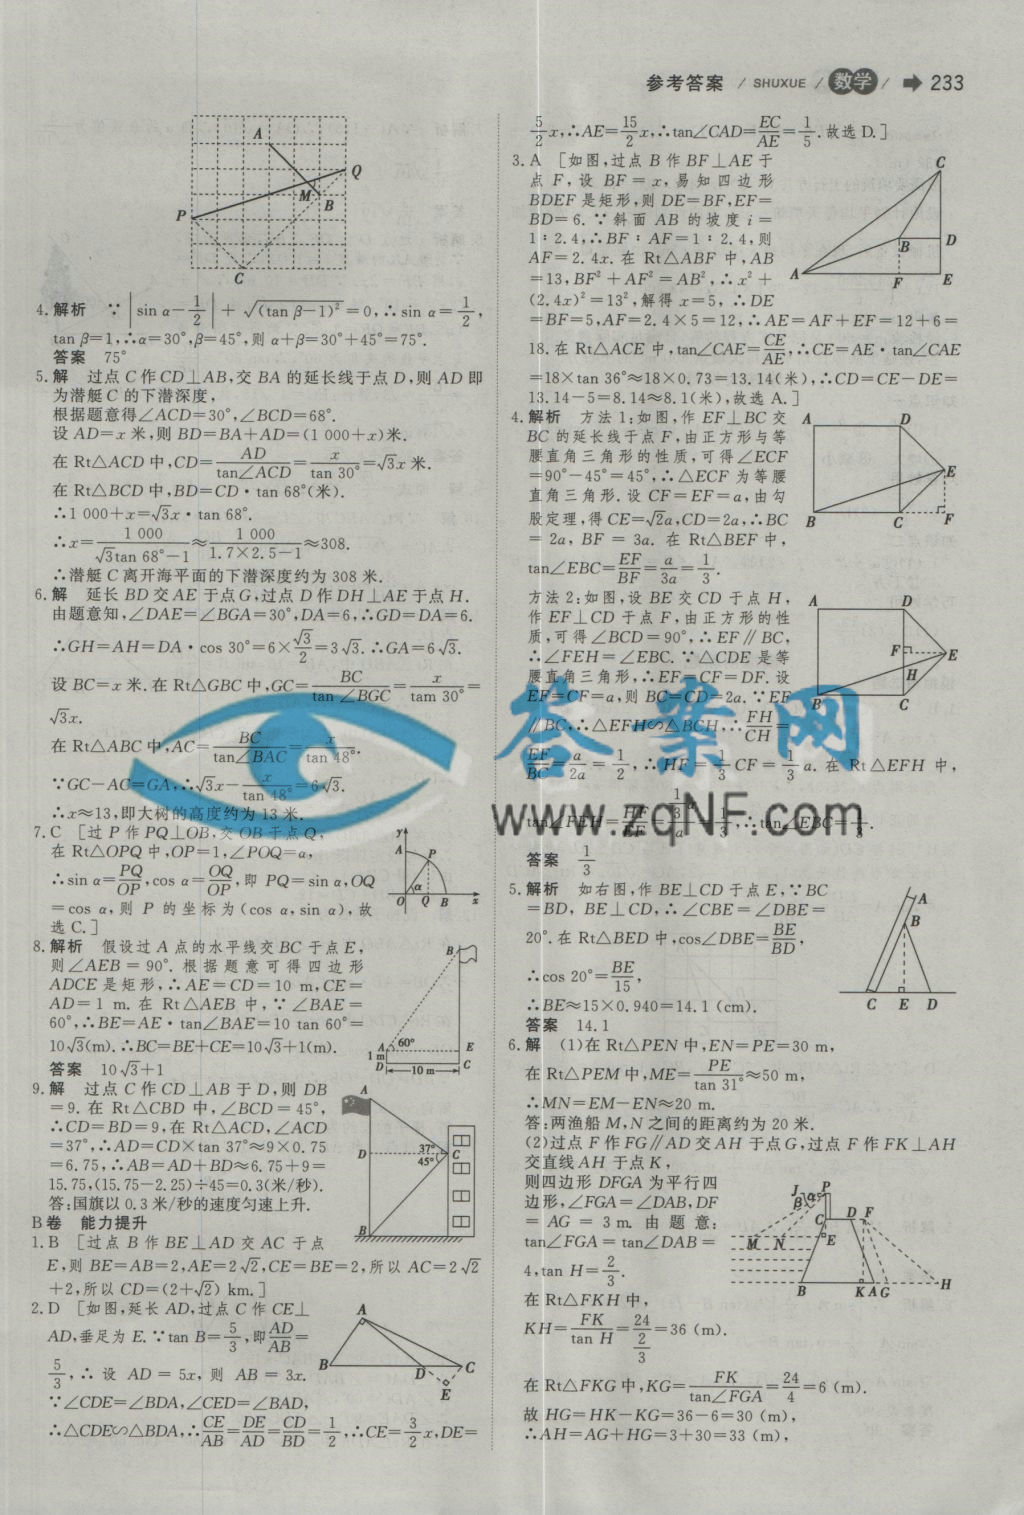 参考答案 / SHUXUE / 数学 / → 233
A
Q
M
B
P
C
4. 解析 ∵|sin α-1/2|+√(tan β-1)²=0,∴sin α=1/2,
tan β=1,∴α=30°,β=45°,则 α+β=30°+45°=75°.
答案 75°
5. 解 过点 C 作 CD⊥AB,交 BA 的延长线于点 D,则 AD 即
为潜艇 C 的下潜深度,
根据题意得∠ACD=30°,∠BCD=68°.
设 AD=x 米,则 BD=BA+AD=(1 000+x)米.
在 Rt△ACD 中,CD=AD/tan∠ACD=x/tan 30°=√3x 米.
在 Rt△BCD 中,BD=CD·tan 68°(米).
∴1 000+x=√3x·tan 68°.
∴x=1 000/(√3tan 68°-1)≈1 000/(1.7×2.5-1)≈308.
∴潜艇 C 离开海平面的下潜深度约为 308 米.
6. 解 延长 BD 交 AE 于点 G,过点 D 作 DH⊥AE 于点 H.
由题意知,∠DAE=∠BGA=30°,DA=6,∴GD=DA=6.
∴GH=AH=DA·cos 30°=6×√3/2=3√3.∴GA=6√3.
设 BC=x 米.在 Rt△GBC 中,GC=BC/tan ∠BGC=x/tam 30°=
√3x.
在 Rt△ABC 中,AC=BC/tan∠BAC=x/tan 48°.
∵GC-AC=GA,∴√3x-x/tan 48°=6√3.
∴x≈13,即大树的高度约为 13 米.
7. C [过 P 作 PQ⊥OB,交 OB 于点 Q,
在 Rt△OPQ 中,OP=1,∠POQ=α,
∴sin α=PQ/OP,cos α=OQ/OP,即 PQ=sin α,OQ
=cos α,则 P 的坐标为(cos α,sin α),故
选 C.]
y
A
P
α
O Q B x
8. 解析 假设过 A 点的水平线交 BC 于点 E,
则∠AEB=90°.根据题意可得四边形
ADCE 是矩形,∴AE=CD=10 m,CE=
AD=1 m.在 Rt△AEB 中,∵∠BAE=
60°,∴BE=AE·tan∠BAE=10 tan 60°=
10√3(m).∴BC=BE+CE=10√3+1(m).
答案 10√3+1
B
A 60° E
1 m
D 10 m C
9. 解 过点 C 作 CD⊥AB 于 D,则 DB
=9.在 Rt△CBD 中,∠BCD=45°,
∴CD=BD=9,在 Rt△ACD,∠ACD
=37°,∴AD=CD×tan 37°≈9×0.75
=6.75,∴AB=AD+BD≈6.75+9=
15.75,(15.75-2.25)÷45=0.3(米/秒).
答:国旗以 0.3 米/秒的速度匀速上升.
A
D 37° C
45°
B
B卷 能力提升
1. B [过点 B 作 BE⊥AD 交 AC 于点
E,则 BE=AB=2,AE=2√2,CE=BE=2,所以 AC=2√2
+2,所以 CD=(2+√2) km.]
2. D [如图,延长 AD,过点 C 作 CE⊥
AD,垂足为 E.∵tan B=5/3,即AD/AB=
5/3,∴设 AD=5x,则 AB=3x.
∵∠CDE=∠BDA,∠CED=∠BAD,
∴△CDE∽△BDA,∴CE/AB=DE/AD=CD/BD=1/2,∴CE=3/2x,DE=
A
B D C
E
5/2x,∴AE=15/2x,∴tan∠CAD=EC/AE=1/5.故选 D.]
3. A [如图,过点 B 作 BF⊥AE 于
点 F,设 BF=x,易知四边形
BDEF 是矩形,则 DE=BF,EF=
BD=6.∵斜面 AB 的坡度 i=
1∶2.4,∴BF∶AF=1∶2.4,则
AF=2.4x.在 Rt△ABF 中,AB
=13,BF²+AF²=AB²,∴x²+
(2.4x)²=13²,解得 x=5,∴DE
=BF=5,AF=2.4×5=12,∴AE=AF+EF=12+6=
18.在 Rt△ACE 中,tan∠CAE=CE/AE,∴CE=AE·tan∠CAE
=18×tan 36°≈18×0.73=13.14(米),∴CD=CE-DE=
13.14-5=8.14≈8.1(米),故选 A.]
C
B D
A F E
4. 解析 方法 1:如图,作 EF⊥BC 交
BC 的延长线于点 F,由正方形与等
腰直角三角形的性质,可得∠ECF
=90°-45°=45°,∴△ECF 为等腰
直角三角形.设 CF=EF=a,由勾
股定理,得 CE=√2a,CD=2a,∴BC
=2a,BF=3a.在 Rt△BEF 中,
tan∠EBC=EF/BF=a/3a=1/3.
A D
E
B C F
方法 2:如图,设 BE 交 CD 于点 H,
作 EF⊥CD 于点 F,由正方形的性
质,可得∠BCD=90°,∴EF∥BC,
∴∠FEH=∠EBC.∵△CDE 是等
腰直角三角形,∴EF=CF=DF.设
EF=CF=a,则 BC=CD=2a.∵EF
∥BC,∴△EFH∽△BCH,∴FH/CH=
EF/BC=a/2a=1/2,∴HF=1/3CF=1/3a.在 Rt△EFH 中,
tan∠FEH=HF/EF=1/3a/a=1/3,∴tan∠EBC=1/3.
A D
F E
H
B C
答案 1/3
5. 解析 如右图,作 BE⊥CD 于点 E,∵BC
=BD,BE⊥CD,∴∠CBE=∠DBE=
20°.在 Rt△BED 中,cos∠DBE=BE/BD,
∴cos 20°=BE/15,
∴BE≈15×0.940=14.1 (cm).
答案 14.1
A
B
C E D
6. 解 (1)在 Rt△PEN 中,EN=PE=30 m,
在 Rt△PEM 中,ME=PE/tan 31°≈50 m,
∴MN=EM-EN≈20 m.
答:两渔船 M,N 之间的距离约为 20 米.
(2)过点 F 作 FG∥AD 交 AH 于点 G,过点 F 作 FK⊥AH
交直线 AH 于点 K,
则四边形 DFGA 为平行四
边形,∠FGA=∠DAB,DF
=AG=3 m.由题意:
tan∠FGA=tan∠DAB=
4,tan H=2/3.
在 Rt△FKH 中,
KH=FK/tan H=24/(2/3)=36 (m).
在 Rt△FKG 中,KG=FK/tan∠FGA=24/4=6 (m).
故 HG=HK-KG=36-6=30 (m),
∴AH=AG+HG=3+30=33 (m),
J P
β α
C D F
M N E
B K A G H
答案网
www.zqNF.com